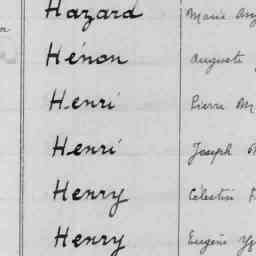 Hazard Marie
Hénon Auguste
Henri Pierre M
Henri Joseph
Henry Célestin F
Henry Eugène